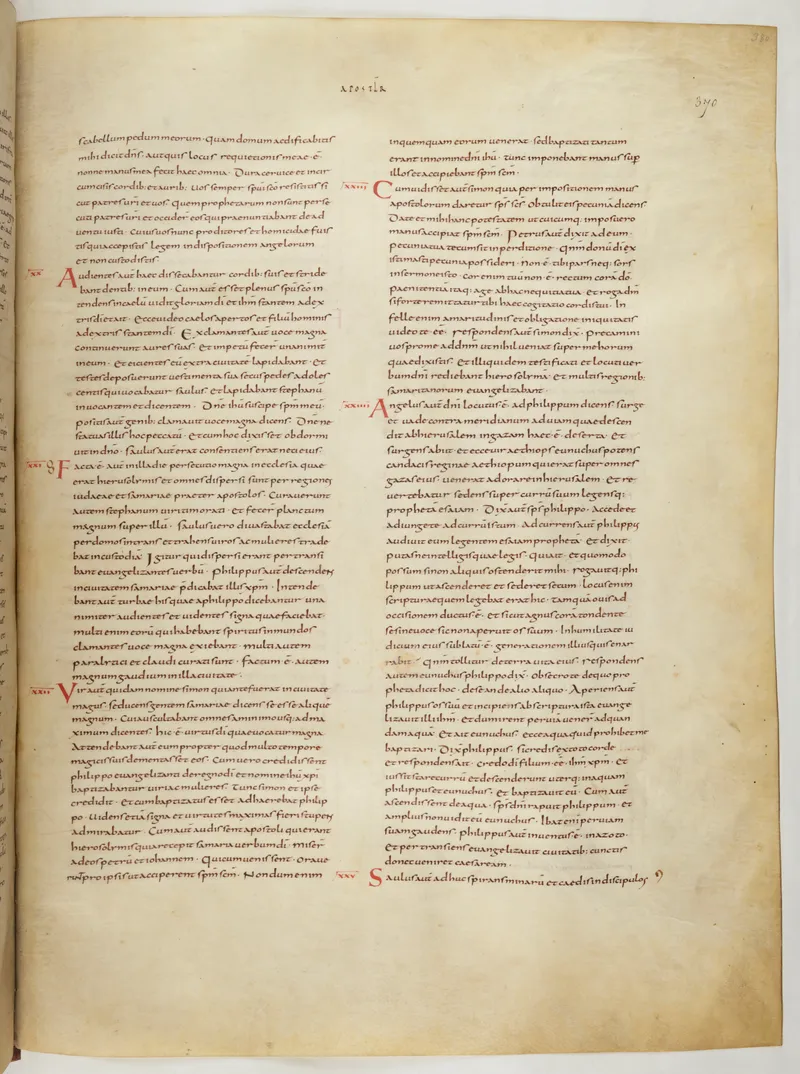 APOSTLA
370
scabellum pedum meorum · quam domum aedificabitis
mihi dicit dn̄s · Aut quis locus requietionis meae · ē ·
nonne manus mea fecit haec omnia · Dura ceruice et incir
cumcisis cordib: et aurib: uos semper sp̄ui sc̄o resistitis si
cut patres uri et uos · quem prophetarum non sunt perse
cuti patres uri et occider eos qui praenuntiabant de ad
uentu iusti · Cuius uos nunc proditores et homicidae fuis
tis qui accepistis legem in dispositionem angelorum
et non custodistis ·
XX Audientes aut̄ haec dissecabantur cordib: suis et stride
bant dentib: in eum · Cum aut̄ esset plenus sp̄u sc̄o in
tendens in caelū uidit gloriam dī et ihm̄ stantem a dex
tris dī et ait · Ecce uideo caelos apertos et filiū hominis
a dextris stantem dī · Exclamantes aut̄ uoce magna
continuerunt aures suas · Et impetū fecer unanimit
in eum · Et eicientes eū extra ciuitatē lapidabant · Et
testes deposuerunt uestimenta sua secus pedes adoles
centis qui uocabatur saulus · et lapidabant stephanū
inuocantem et dicentem · Dn̄e ihū suscipe sp̄m meū ·
positis aut̄ genib: clamauit uoce magna dicens · Dn̄e ne
statuas illis hoc peccatū · Et cum hoc dixisset obdormi
uit in dn̄o · Saulus aut̄ erat consentiens neci eius ·
XXI Facta ē · aut̄ in illa die persecutio magna in ecclesia quae
erat hierosolimis et omnes dispersi sunt per regiones
iudaeae et samariae praeter apostolos · Curauerunt
autem stephanum uiri timorati · Et fecer planctum
magnum super illū · Saulus uero diuastabat ecclesiā
per domos intrans et trahens uiros ac mulieres trade
bat in custodiā · Igitur qui dispersi erant pertransi
bant euangelizantes uerbū · Philippus aut̄ descendens
in ciuitatem samariae p̄dicabat illis xpm̄ · Intende
bant aut̄ turbae his quae a philippo dicebantur una
nimiter audientes et uidentes signa quae faciebat ·
multi enim eorū qui habebant spiritus inmundos
clamantes uoce magna exiebant · multi autem
paralitici et claudi curati sunt · factum ē · autem
magnum gaudium in illa ciuitate ·
XXII Vir aut̄ quidam nomine simon qui ante fuerat in ciuitate
magus · seducens gentem samariae dicens sē esse aliquē
magnum · Cui auscultabant omnes a minimo usq: ad ma
ximum dicentes · hic ē · uirtus dī quae uocatur magna ·
Attendebant aut̄ eum propter quod multo tempore
magicis suis dementasset eos · Cum uero credidissent
philippo euangelizanti de regno dī et nomine ihū xp̄i
baptizabantur uiri ac mulieres · Tunc simon et ipse
credidit · Et cum baptizatus esset adhaerebat philip
po · Uidens etiā signa et uirtutes maximas fieri stupens
admirabatur · Cum aut̄ audissent apostoli qui erant
hierosolimis quia recepit samaria uerbum dī · miser
ad eos petrū et iohannem · Qui cum uenissent · oraue
runt pro ipsis ut acciperent sp̄m sc̄m · Nondum enim
in quemquam eorum uenerat · sed baptizati tantum
erant in nomine dn̄i ihū · Tunc imponebant manus sup
illos et accipiebant sp̄m sc̄m ·
XXIII Cum uidisset aut̄ simon quia per impositionem manus
apostolorum daretur sp̄s sc̄s · obtulit eis pecuniā dicens
Date et mihi hanc potestatem ut cuicumq: imposuero
manus accipiat sp̄m sc̄m · Petrus aut̄ dixit ad eum ·
pecunia tua tecum sit in perditione · qn̄m donū dī ex
istimasti pecunia possideri · Non ē · tibi pars neq: sors
in sermone isto · Cor enim tuū non ē · rectum corā dō ·
paenitentiā itaq: age ab hac nequitia tua · et roga dm̄
si forte remittatur tibi haec cogitatio cordis tui · In
felle enim amaritudinis et obligatione iniquitatis
uideo te eē · Respondens aut̄ simon dix̄ · precamini
uos pro me ad dn̄m ut nihil ueniat super me horum
quae dixistis · Et illi quidem testificati et locuti uer
bum dn̄i rediebant hierosolimā · et multis regionib:
samaritanorum euangelizabant ·
XXIIII Angelus aut̄ dn̄i locutus ē · ad philippum dicens · surge
et uade contra meridianum ad uiam quae descen
dit ab hierusalem in gazam haec ē · deserta · Et
surgens abiit · et ecce uir aethiops eunuchus potens
candacis reginae aethiopum qui erat super omnes
gazas eius · uenerat adorare in hierusalem · Et re
uertebatur sedens super currū suum legensq:
prophetā esaiam · Dix̄ aut̄ sp̄s philippo · Accede et
adiunge te ad currū istum · Adcurrens aut̄ philippus
audiuit eum legentem esaiam prophetā · Et dixit
putasne intellegis quae legis · Qui ait · et quomodo
possum si non aliquis ostenderit mihi · rogauitq: phi
lippum ut ascenderet et sederet secum · Locus enim
scripturae quem legebat erat hic · tamquā ouis ad
occisionem ductus ē · et sicut agnus corā tondente
se sine uoce sic non aperuit os suum · In humilitate iu
dicium eius sublatū ē · generationem illius quis enar
rabit · qn̄m tollitur de terra uita eius · respondens
autem eunuchus philippo dix̄ · Obsecro te de quo pro
pheta dicit hoc · de se an de alio aliquo · Aperiens aut̄
philippus os suū et incipiens ab scriptura ista euange
lizauit illi ihm̄ · Et dum irent per uiā uener ad quan
dam aquā · Et ait eunuchus · ecce aqua quid prohibet me
baptizari · Dix̄ philippus · si credis ex toto corde
et respondens ait · Credo dī filium · eē · ihm̄ xpm̄ · et
iussit stare currū et descenderunt uterq: in aquam
philippus et eunuchus · Et baptizauit eū · Cum aut̄
ascendissent de aqua · sp̄s dn̄i rapuit philippum · et
amplius non uidit eū eunuchus · Ibat enim per uiam
suam gaudens · philippus aut̄ inuentus ē · in azoto ·
Et pertransiens euangelizauit ciuitatib: cunctis
donec ueniret caesaream ·
XXV Saulus aut̄ adhuc spirans minarū et caedis in discipulos